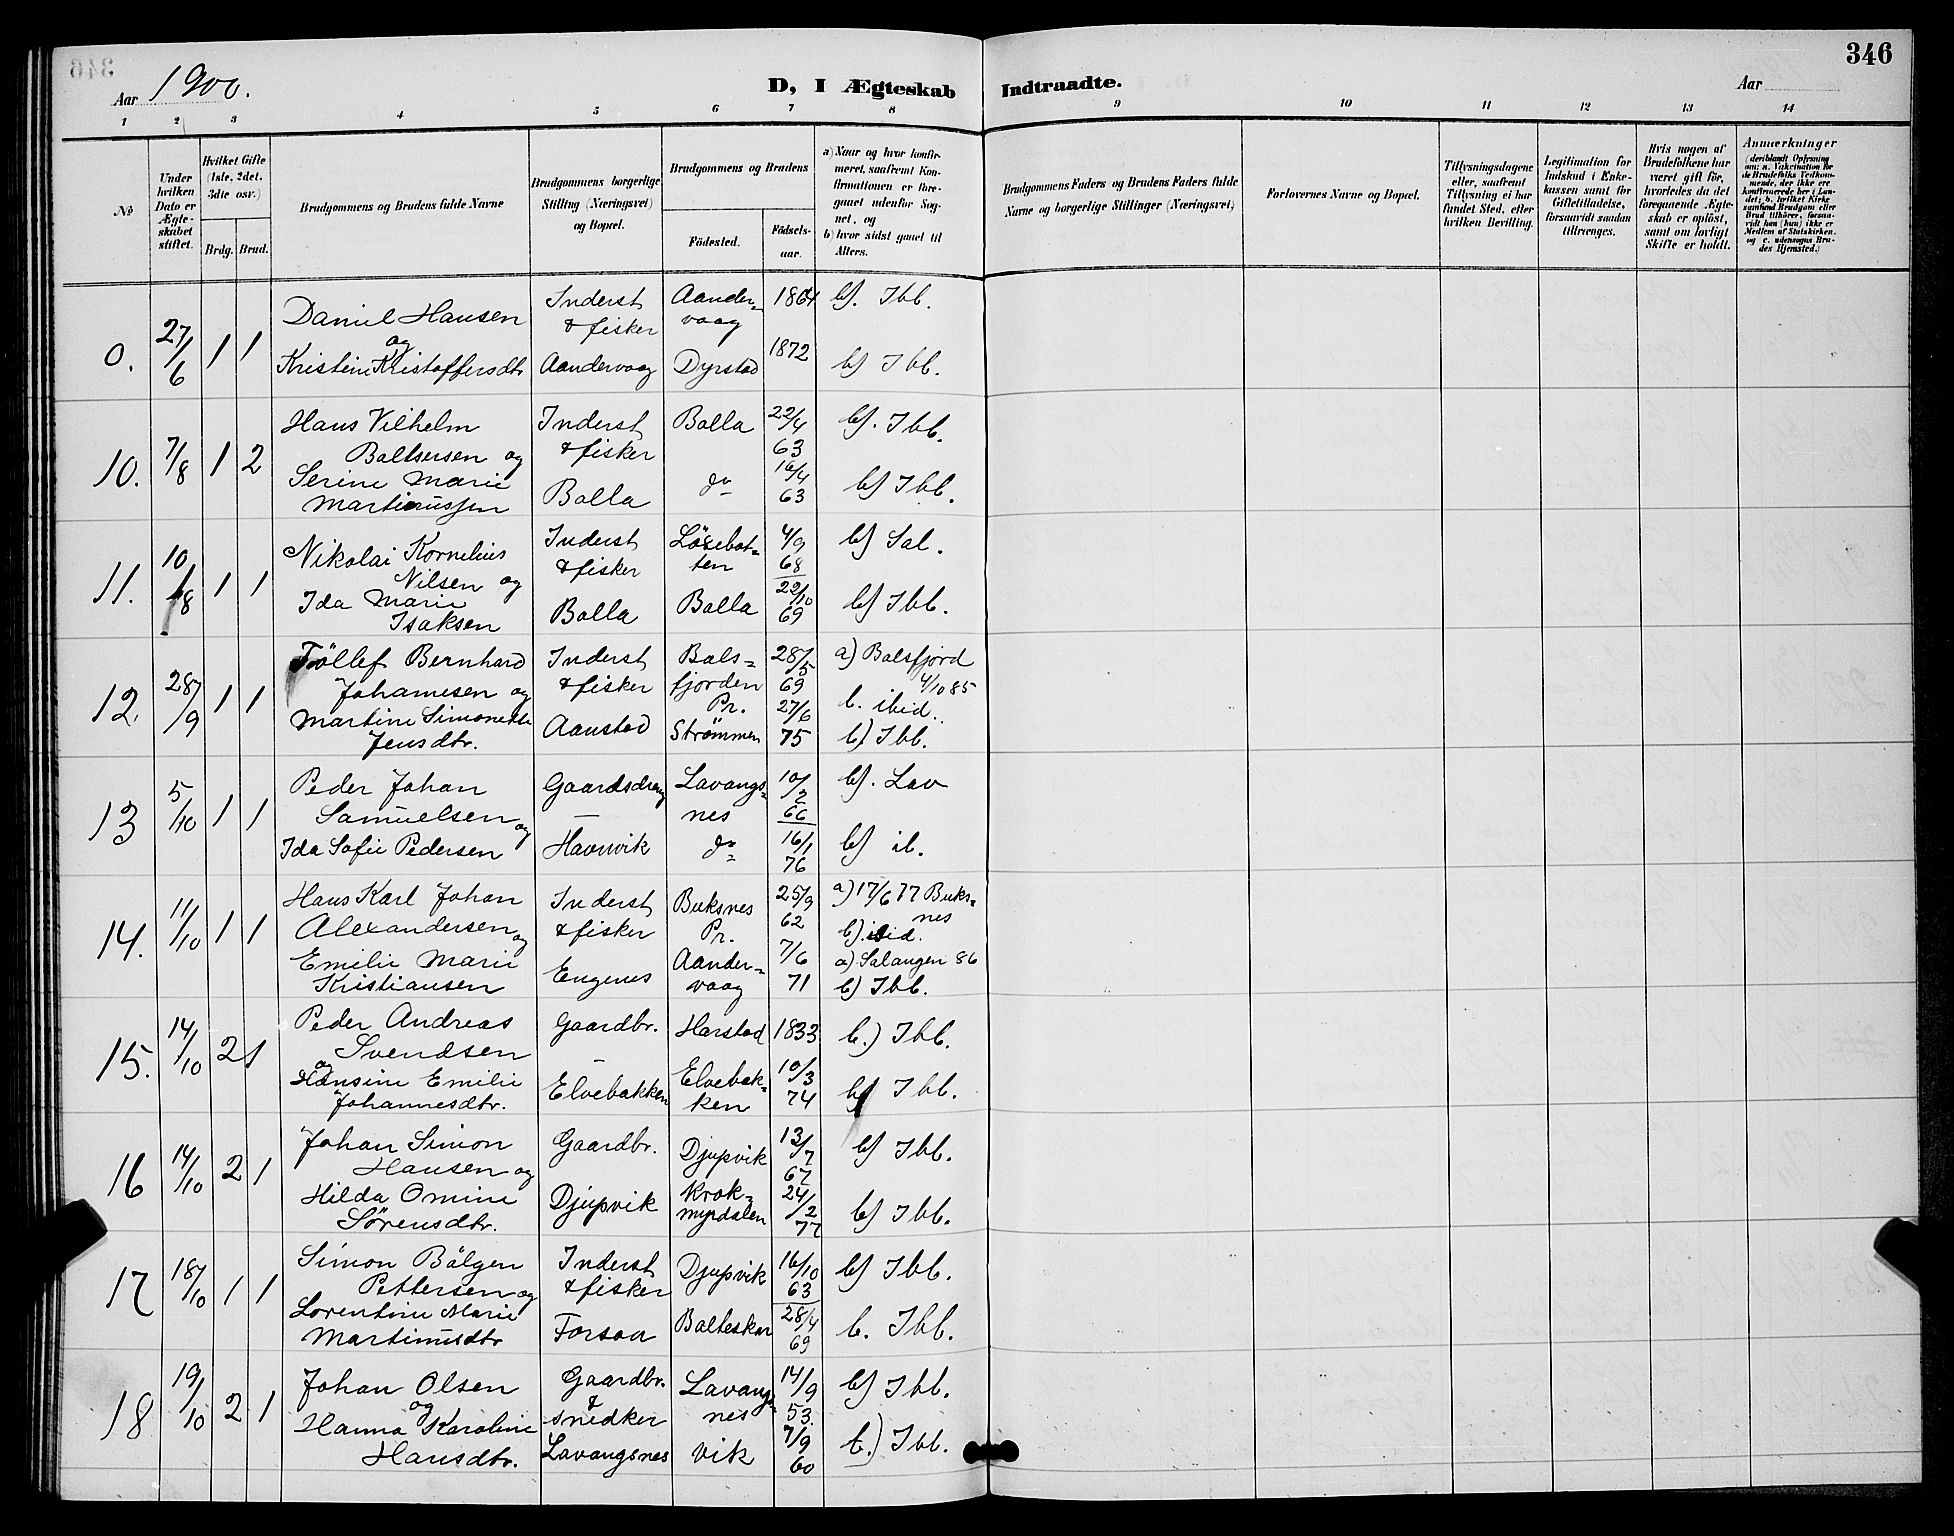 346
Aar 1900.
D, I Ægteskab Indtraadte.
Aar
1 2 3 4 5 6 7 8 9 10 11 12 13 14
№
Under hvilken Dato er Ægteskabet stiftet.
Hvilket Gifte (1ste, 2det, 3die osv.)
Brdg. Brud.
Brudgommens og Brudens fulde Navne
Brudgommens borgerlige Stilling (Næringsvei) og Bopæl.
Brudgommens og Brudens
Fødested. Fødselsaar.
a) Naar og hvor konfirmeret, saafremt Konfirmationen er foregaaet udenfor Sognet, og
b) hvor sidst gaaet til Alters.
Brudgommens Faders og Brudens Faders fulde Navne og borgerlige Stillinger (Næringsvei)
Forlovernes Navne og Bopæl.
Tillysningsdagene eller, saafremt Tillysning ei har fundet Sted, efter hvilken Bevilling.
Legitimation for Indskud i Enkekassen samt for Giftetilladelse, forsaavidt saadan tiltrænges.
Hvis nogen af Brudefolkene har været gift før, hvorledes da det foregaaende Ægteskab er opløst, samt om lovligt Skifte er holdt.
Anmerkninger
(deriblandt Oplysning om: a. Vakcination for de Brudefolks Vedkommende, der ikke ere konfirmerede her i Landet; b. hvilket Kirkesamfund Brudgom eller Brud tilhører, forsaavidt han (hun) ikke er Medlem af Statskirken, og c. udensogns Brudes Hjemsted.)
0. 27/6 1 1
Daniel Hansen og
Kristine Kristoffersdtr
Inderst & fisker
Aandervaag
Aandervaag 1864 b). Ibb.
Dyrstad 1872 b) Ibb.
10. 7/8 1 2
Hans Vilhelm
Baltsersen og
Serine Marie
Martinussen
Inderst & fisker
Bolla
Bolla 22/4 63 b). Ibb.
do 16/4 63 b) Ibb.
11. 10/8 1 1
Nikolai Kornelius
Nilsen og
Ida Marie
Isaksen
Inderst & fisker
Bolla
Løsebotten 4/9 68 b) Sal.
Bolla 22/10 69 b) Ibb.
12. 28/9 1 1
Tøllef Bernhard
Johannesen og
Martine Simonette
Jensdtr.
Inderst & fisker
Aanstad
Balsfjorden Pr. 28/5 69 a) Balsfjord 4/10 85
b. ibid.
Strømmen 27/6 75 b) Ibb.
13 5/10 1 1
Peder Johan
Samuelsen og
Ida Sofie Pedersen
Gaardsdreng
Havnvik
Lavangsnes 10/2 66 b). Lav
do 16/1 76 b) ib.
14. 11/10 1 1
Hans Karl Johan
Alexandersen og
Emilie Marie
Kristiansen
Inderst & fisker
Engenes
Buksnes Pr. 25/9 62 a) 17/6 77 Buksnes
b). ibid.
Aandervaag 7/6 71 a) Salangen 86
b) Ibb.
15. 14/10 2 1
Peder Andreas
Svendsen
og
Hansine Emilie
Johannesdtr.
Gaardbr.
Elvebakken
Harstad 1833 b.) Ibb.
Elvebakken 10/3 74 b) Ibb.
16 14/10 2 1
Johan Simon
Hansen og
Hilda Omine
Sørensdtr.
Gaardbr.
Djupvik
Djupvik 13/7 67 b) Ibb.
Krokmyrdalen 24/2 77 b) Ibb.
17 18/10 1 1
Simon Bølgen
Pettersen og
Lorentine Marie
Martinusdtr
Inderst & fisker
Forsaa
Djupvik 16/10 63 b) Ibb.
Balteskar 28/4 69 b. Ibb.
18 19/10 2 1
Johan Olsen
og
Hanna Karoline
Hansdtr.
Gaardbr. & snedker
Lavangsnes
Lavangsnes 14/9 53. b) Ibb.
Vik 7/9 60 b.) Ibb.